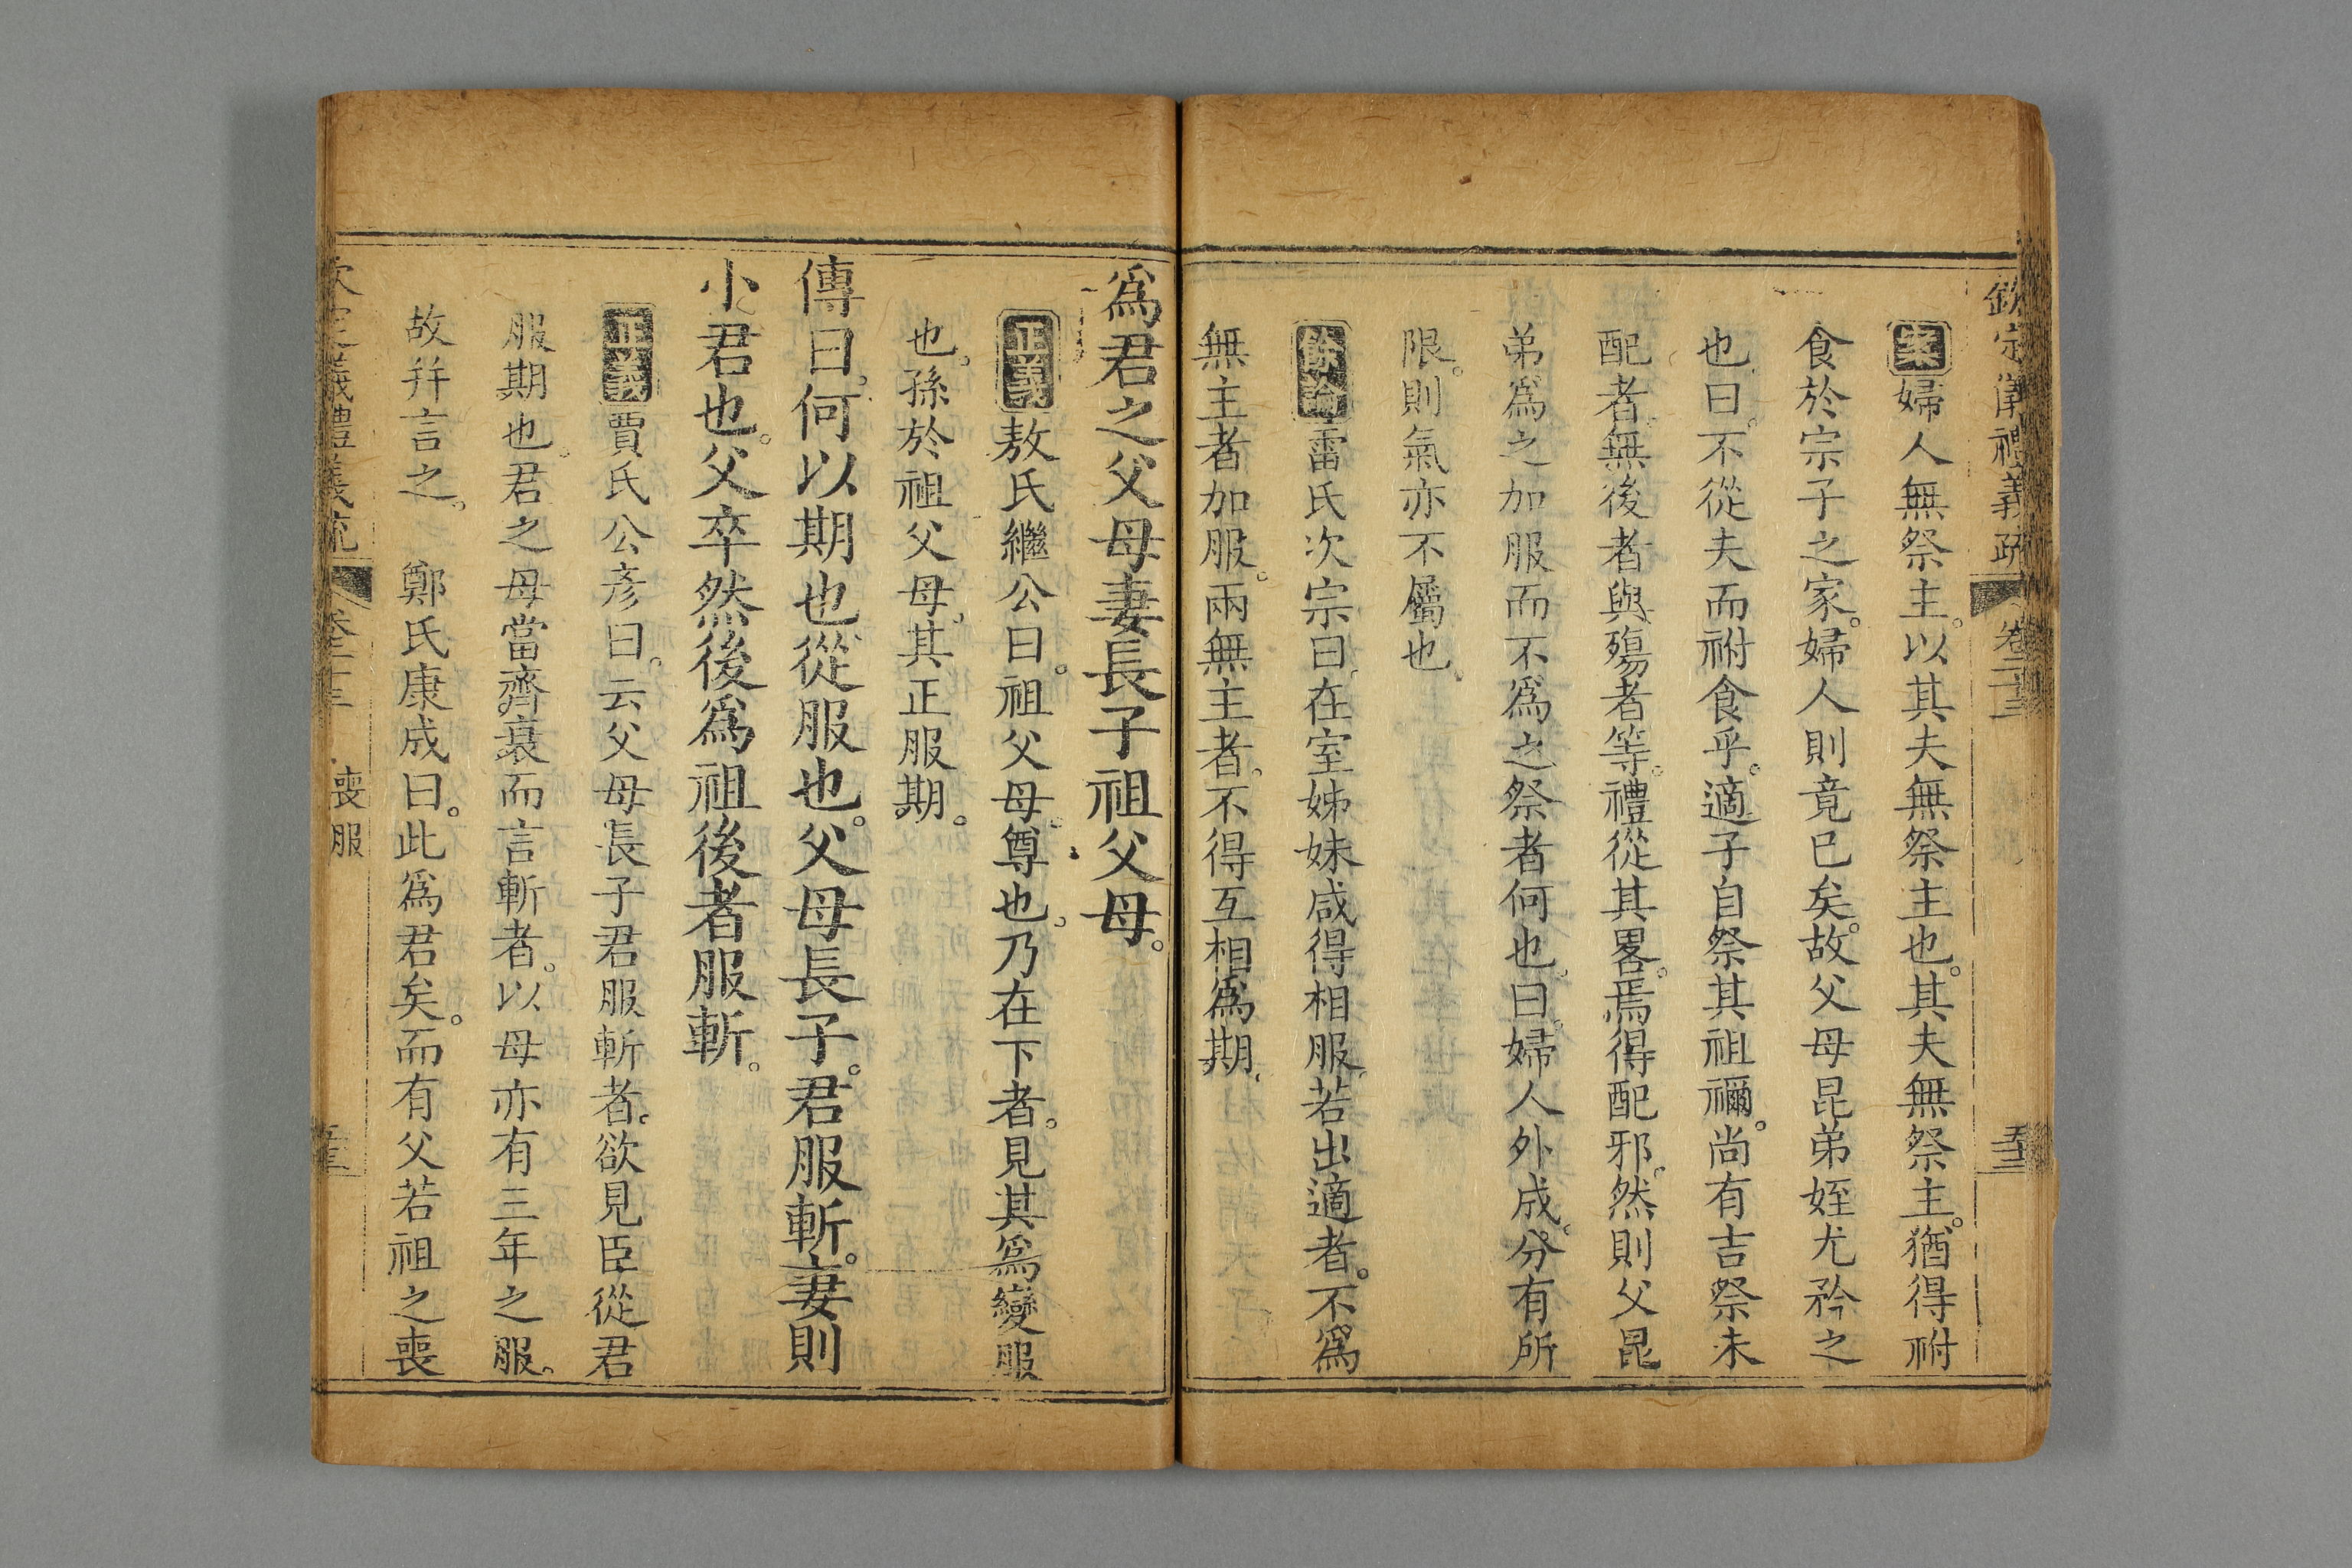 欽定儀禮義疏 卷二十三 五十三
案婦人無祭主。以其夫無祭主也。其夫無祭主。猶得祔
食於宗子之家。婦人則竟已矣。故父母昆弟姪尤矜之
也。曰。不從夫而祔食乎。適子自祭其祖禰。尚有吉祭未
配者。無後者與殤者等。禮從其畧。焉得配邪。然則父昆
弟爲之加服而不爲之祭者何也。曰。婦人外成。分有所
限。則氣亦不屬也。
餘論雷氏次宗曰。在室姊妹咸得相服。若出適者。不爲
無主者加服。兩無主者。不得互相爲期。
爲君之父母妻長子祖父母。
正義敖氏繼公曰。祖父母尊也。乃在下者。見其爲變服
也。孫於祖父母。其正服期。
傳曰。何以期也。從服也。父母長子。君服斬。妻則
小君也。父卒然後爲祖後者服斬。
正義賈氏公彥曰。云父母長子君服斬者。欲見臣從君
服期也。君之母當齊衰而言斬者。以母亦有三年之服。
故幷言之。 鄭氏康成曰。此爲君矣。而有父若祖之喪
欽定儀禮義疏 卷二十三 喪服